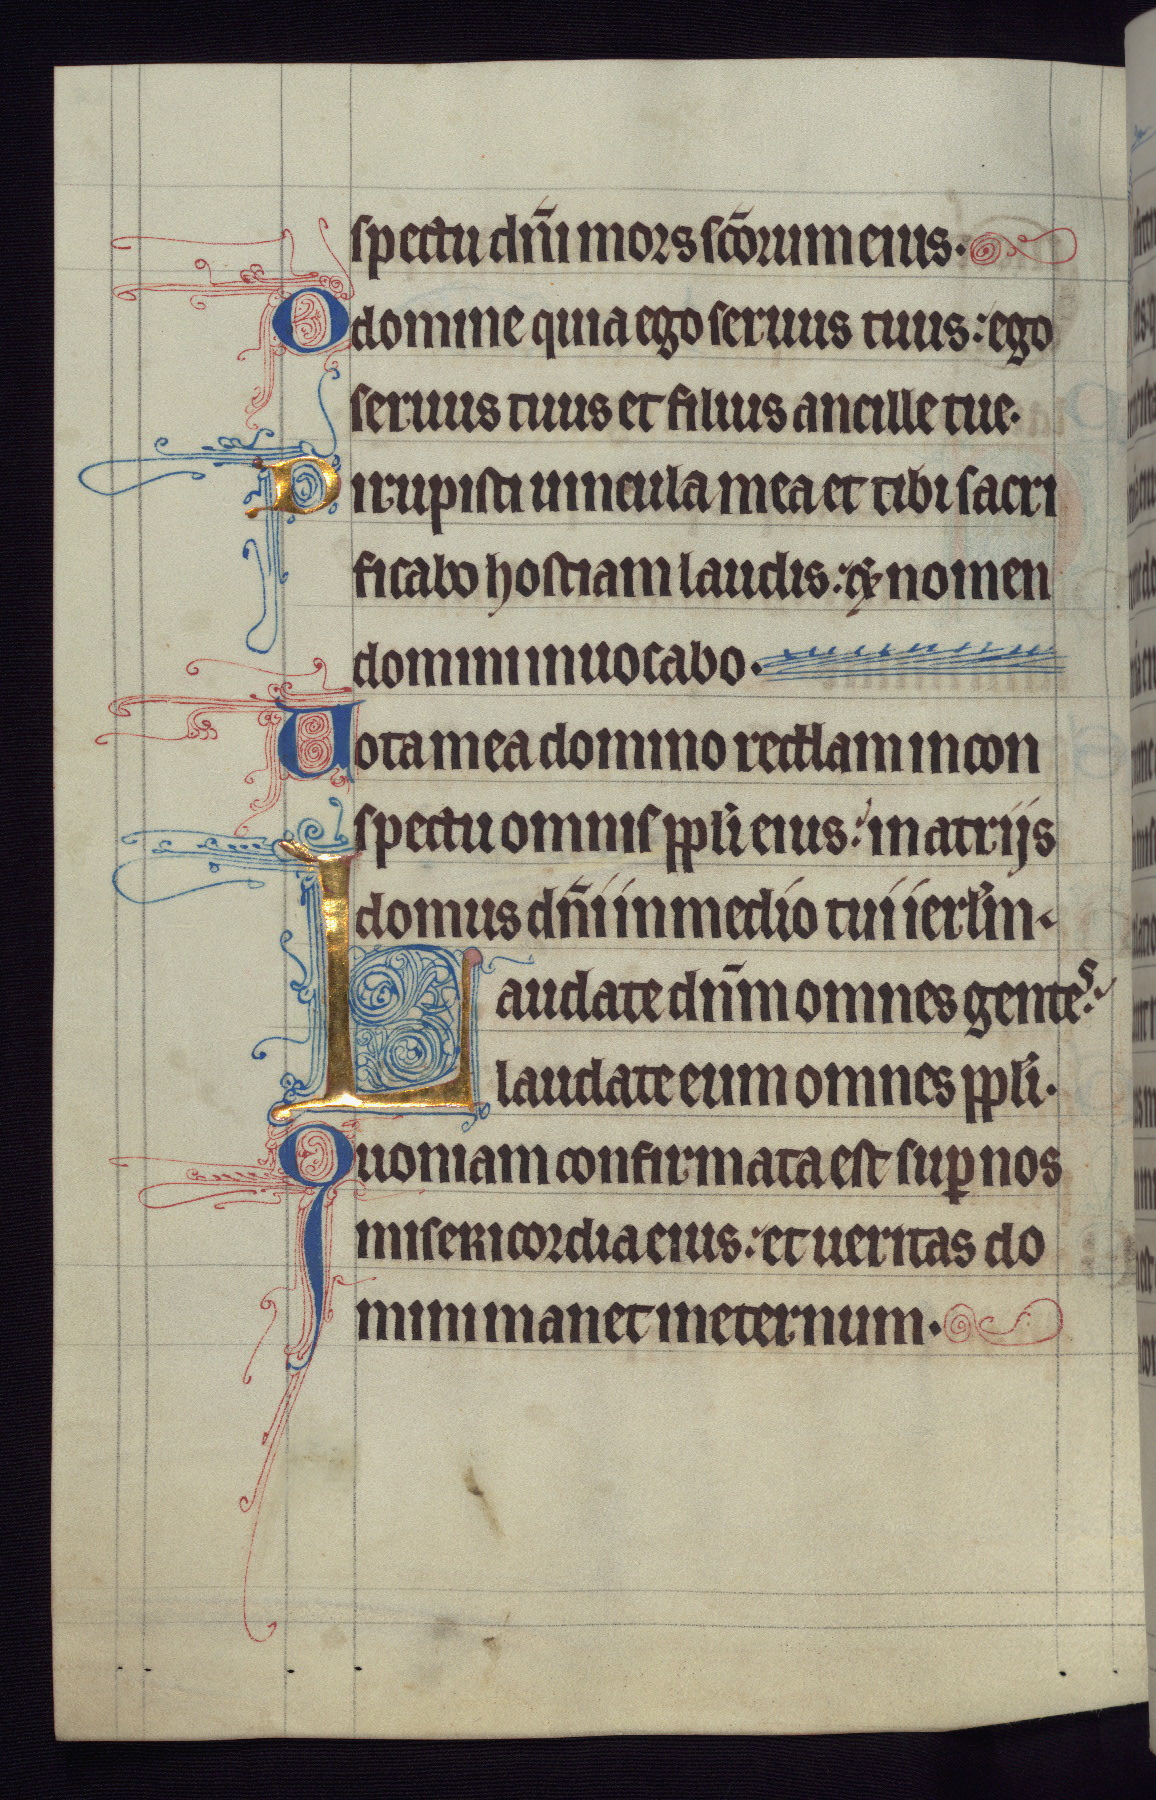 spectu dn̄i mors sc̄orum eius.
O domine quia ego seruus tuus: ego
seruus tuus et filius ancille tue.
Dirupisti uincula mea et tibi sacri
ficabo hostiam laudis: & nomen
domini inuocabo.
Uota mea domino reddam in con
spectu omnis ppl̄i eius: in atrijs
domus dn̄i in medio tui ierl̄m.
Laudate dn̄m omnes gentes:
laudate eum omnes ppl̄i.
Quoniam confirmata est sup̱ nos
misericordia eius: et ueritas do
mini manet in eternum.